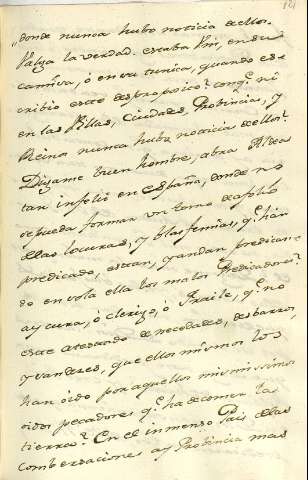 „donde nunca hubo noticia dellos.
Valga la verdad. estaba Vm, en su
camissa, ó en su tunica, quando es-
cribio este despropósito? conqe. ni
en las Villas, Ciudades, Provincia, y
Reino nunca hubo noticia dellos?
Digame buen hombre, abra Aldea
tan infeliz en España, donde no
se pueda formar un tomo de afolio
de las locuras, y blasfemias, qe. han
predicado, estan, y andan predican-
do en sola ella los malos Predicadores?
ay cura, ó clerigo, ó Fraile, qe. no
este atestado de necedades, desbarros,
y sandezes, que ellos mismos los
han oido por aquellos mismissimos
oidos pecadores qe. ha de comer la
tierra? En el inmenso Pais de las
combersaciones ay Provincia mas